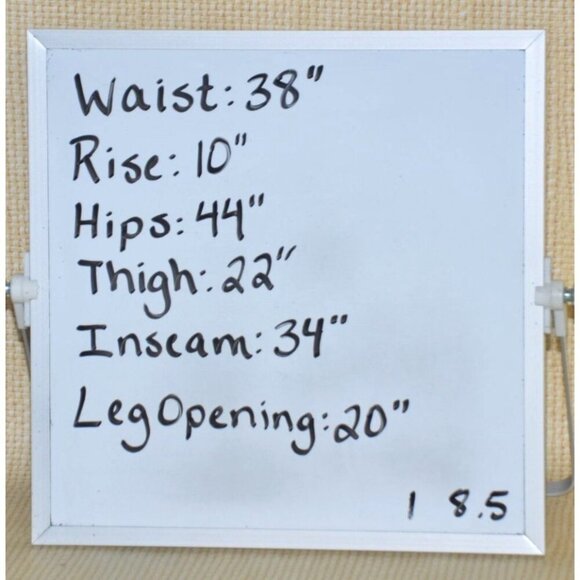 Waist: 38"
Rise: 10"
Hips: 44"
Thigh: 22"
Inseam: 34"
Leg Opening: 20"
1 8.5